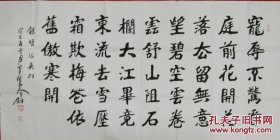 寵辱不驚看
庭前花開花
落去留無意
望碧空雲卷
雲舒山阻石
欄大江畢竟
東流去雪壓
霜欺梅花依
舊傲寒開